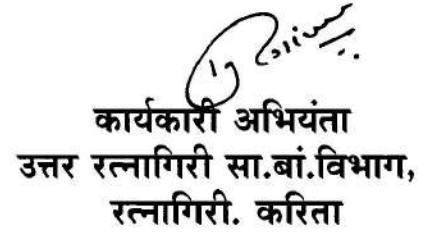 कार्यकारी अभियंता
उत्तर रत्नागिरी सा.बां.विभाग,
रत्नागिरी. करिता